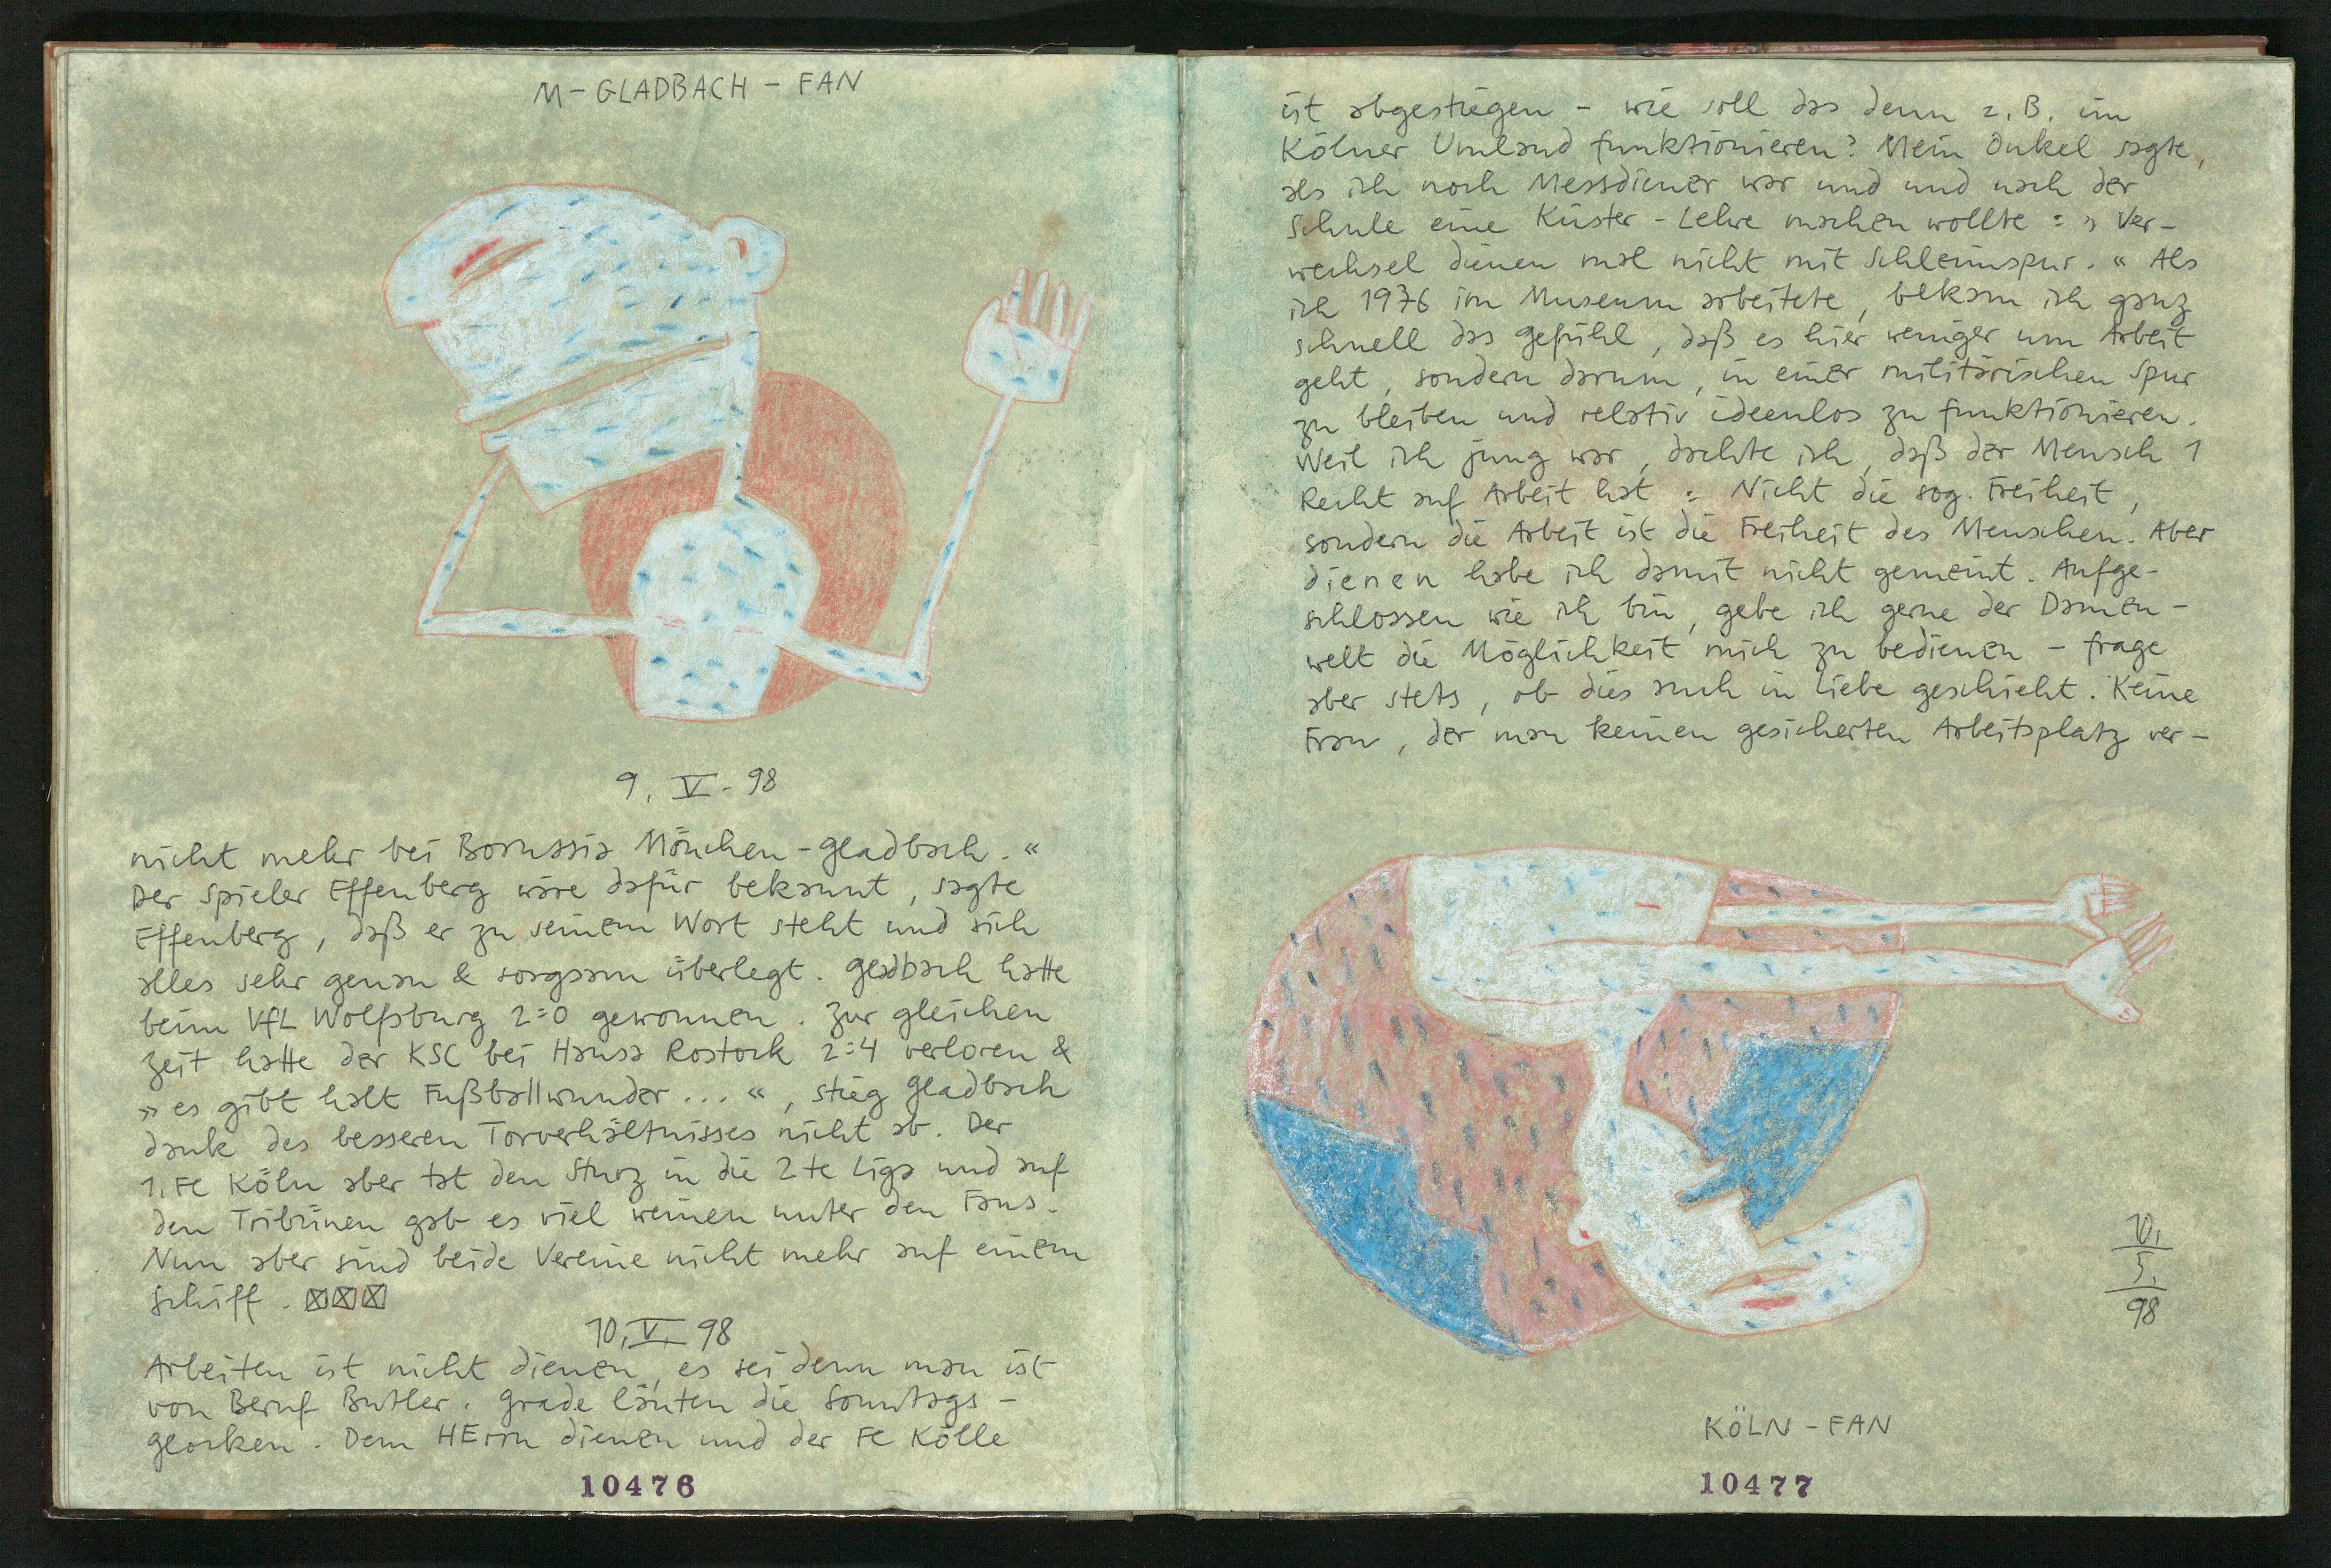 M - GLADBACH - FAN
9. V - 98
nicht mehr bei Borussia Mönchen - Gladbach. «
Der Spieler Effenberg wäre dafür bekannt, sagte
Effenberg, daß er zu seinem Wort steht und sich
alles sehr genau & sorgsam überlegt. Gladbach hatte
beim VfL Wolfsburg 2:0 gewonnen. Zur gleichen
Zeit hatte der KSC bei Hansa Rostock 2:4 verloren &
» es gibt halt Fußballwunder ... «, stieg Gladbach
dank des besseren Torverhältnisses nicht ab. Der
1. FC Köln aber tat den Sturz in die 2te Liga und auf
den Tribünen gab es viel weinen unter den Fans.
Nun aber sind beide Vereine nicht mehr auf einem
Schiff. ☒☒☒
10. V. 98
Arbeiten ist nicht dienen, es sei denn man ist
von Beruf Butler. Grade läuten die Sonntags -
glocken. Dem HErrn dienen und der FC Kölle
10476
ist abgestiegen - wie soll das denn z.B. im
Kölner Umland funktionieren? Mein Onkel sagte,
als ich noch Messdiener war und und nach der
Schule eine Küster - Lehre machen wollte : » Ver-
wechsel dienen mal nicht mit Schleimspur. « Als
ich 1976 im Museum arbeitete, bekam ich ganz
schnell das Gefühl, daß es hier weniger um Arbeit
geht, sondern darum, in einer militärischen Spur
zu bleiben und relativ ideenlos zu funktionieren.
Weil ich jung war, dachte ich, daß der Mensch 1
Recht auf Arbeit hat : Nicht die sog. Freiheit,
sondern die Arbeit ist die Freiheit des Menschen. Aber
dienen habe ich damit nicht gemeint. Aufge-
schlossen wie ich bin, gebe ich gerne der Damen-
welt die Möglichkeit mich zu bedienen - frage
aber stets, ob dies auch in Liebe geschieht. Keine
Frau, der man keinen gesicherten Arbeitsplatz ver-
10.
5.
98
KÖLN - FAN
10477